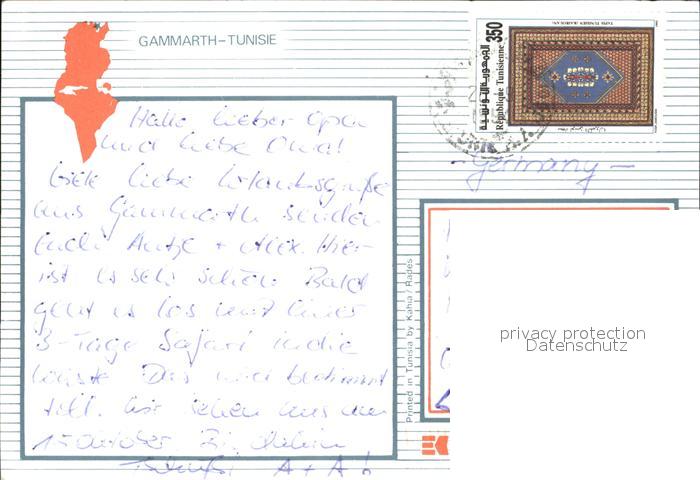 GAMMARTH-TUNISIE
350
République Tunisienne
الجمهورية التونسية
Hallo lieber Opa
und liebe Oma!
liebe Urlaubsgrüße
aus Gammarth senden
Euch Antje + Alex. Hier
ist es sehr schön. Bald
geht es los mit einer
3-Tage Safari in die
Wüste. Das wird bestimmt
toll. Wir sehen uns am
15 Oktober
A + A!
-Germany-
Printed in Tunisia by Kahia / Rades
privacy protection
Datenschutz